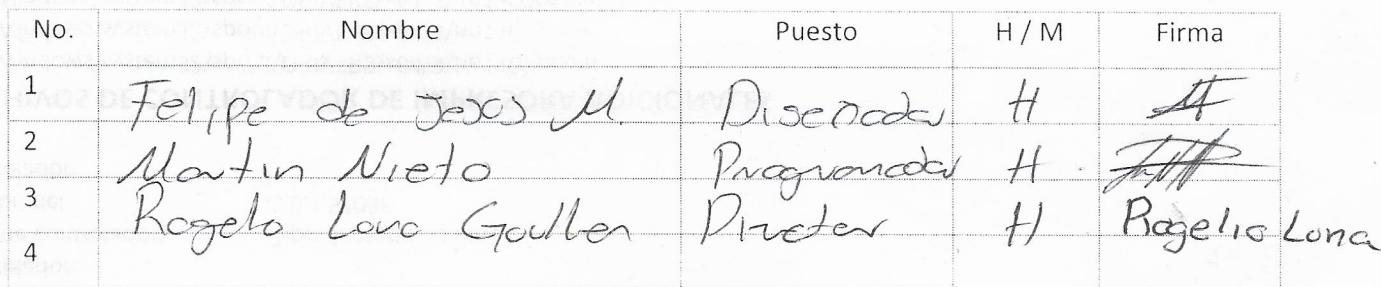 No. Nombre Puesto H / M Firma
1 Felipe de Jesus M. Diseñador H
2 Martin Nieto Programador H
3 Rogelo Lona Director H Rogelio Lona
4